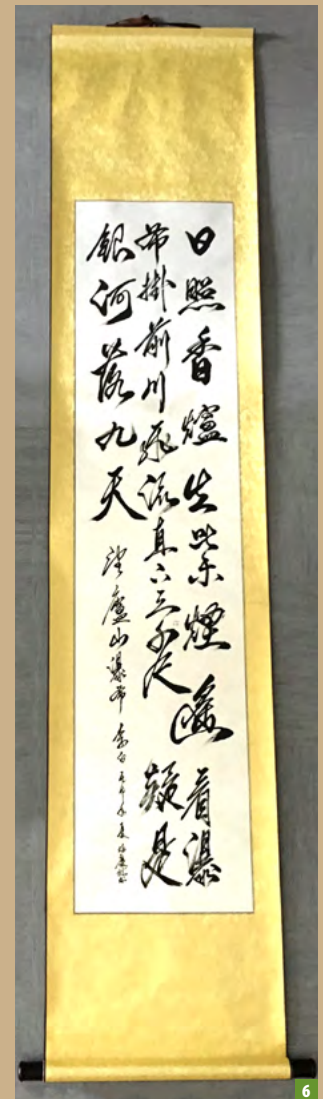 日照香爐生紫煙遙看瀑
布掛前川飛流直下三千尺疑是
銀河落九天
望廬山瀑布 李白
6